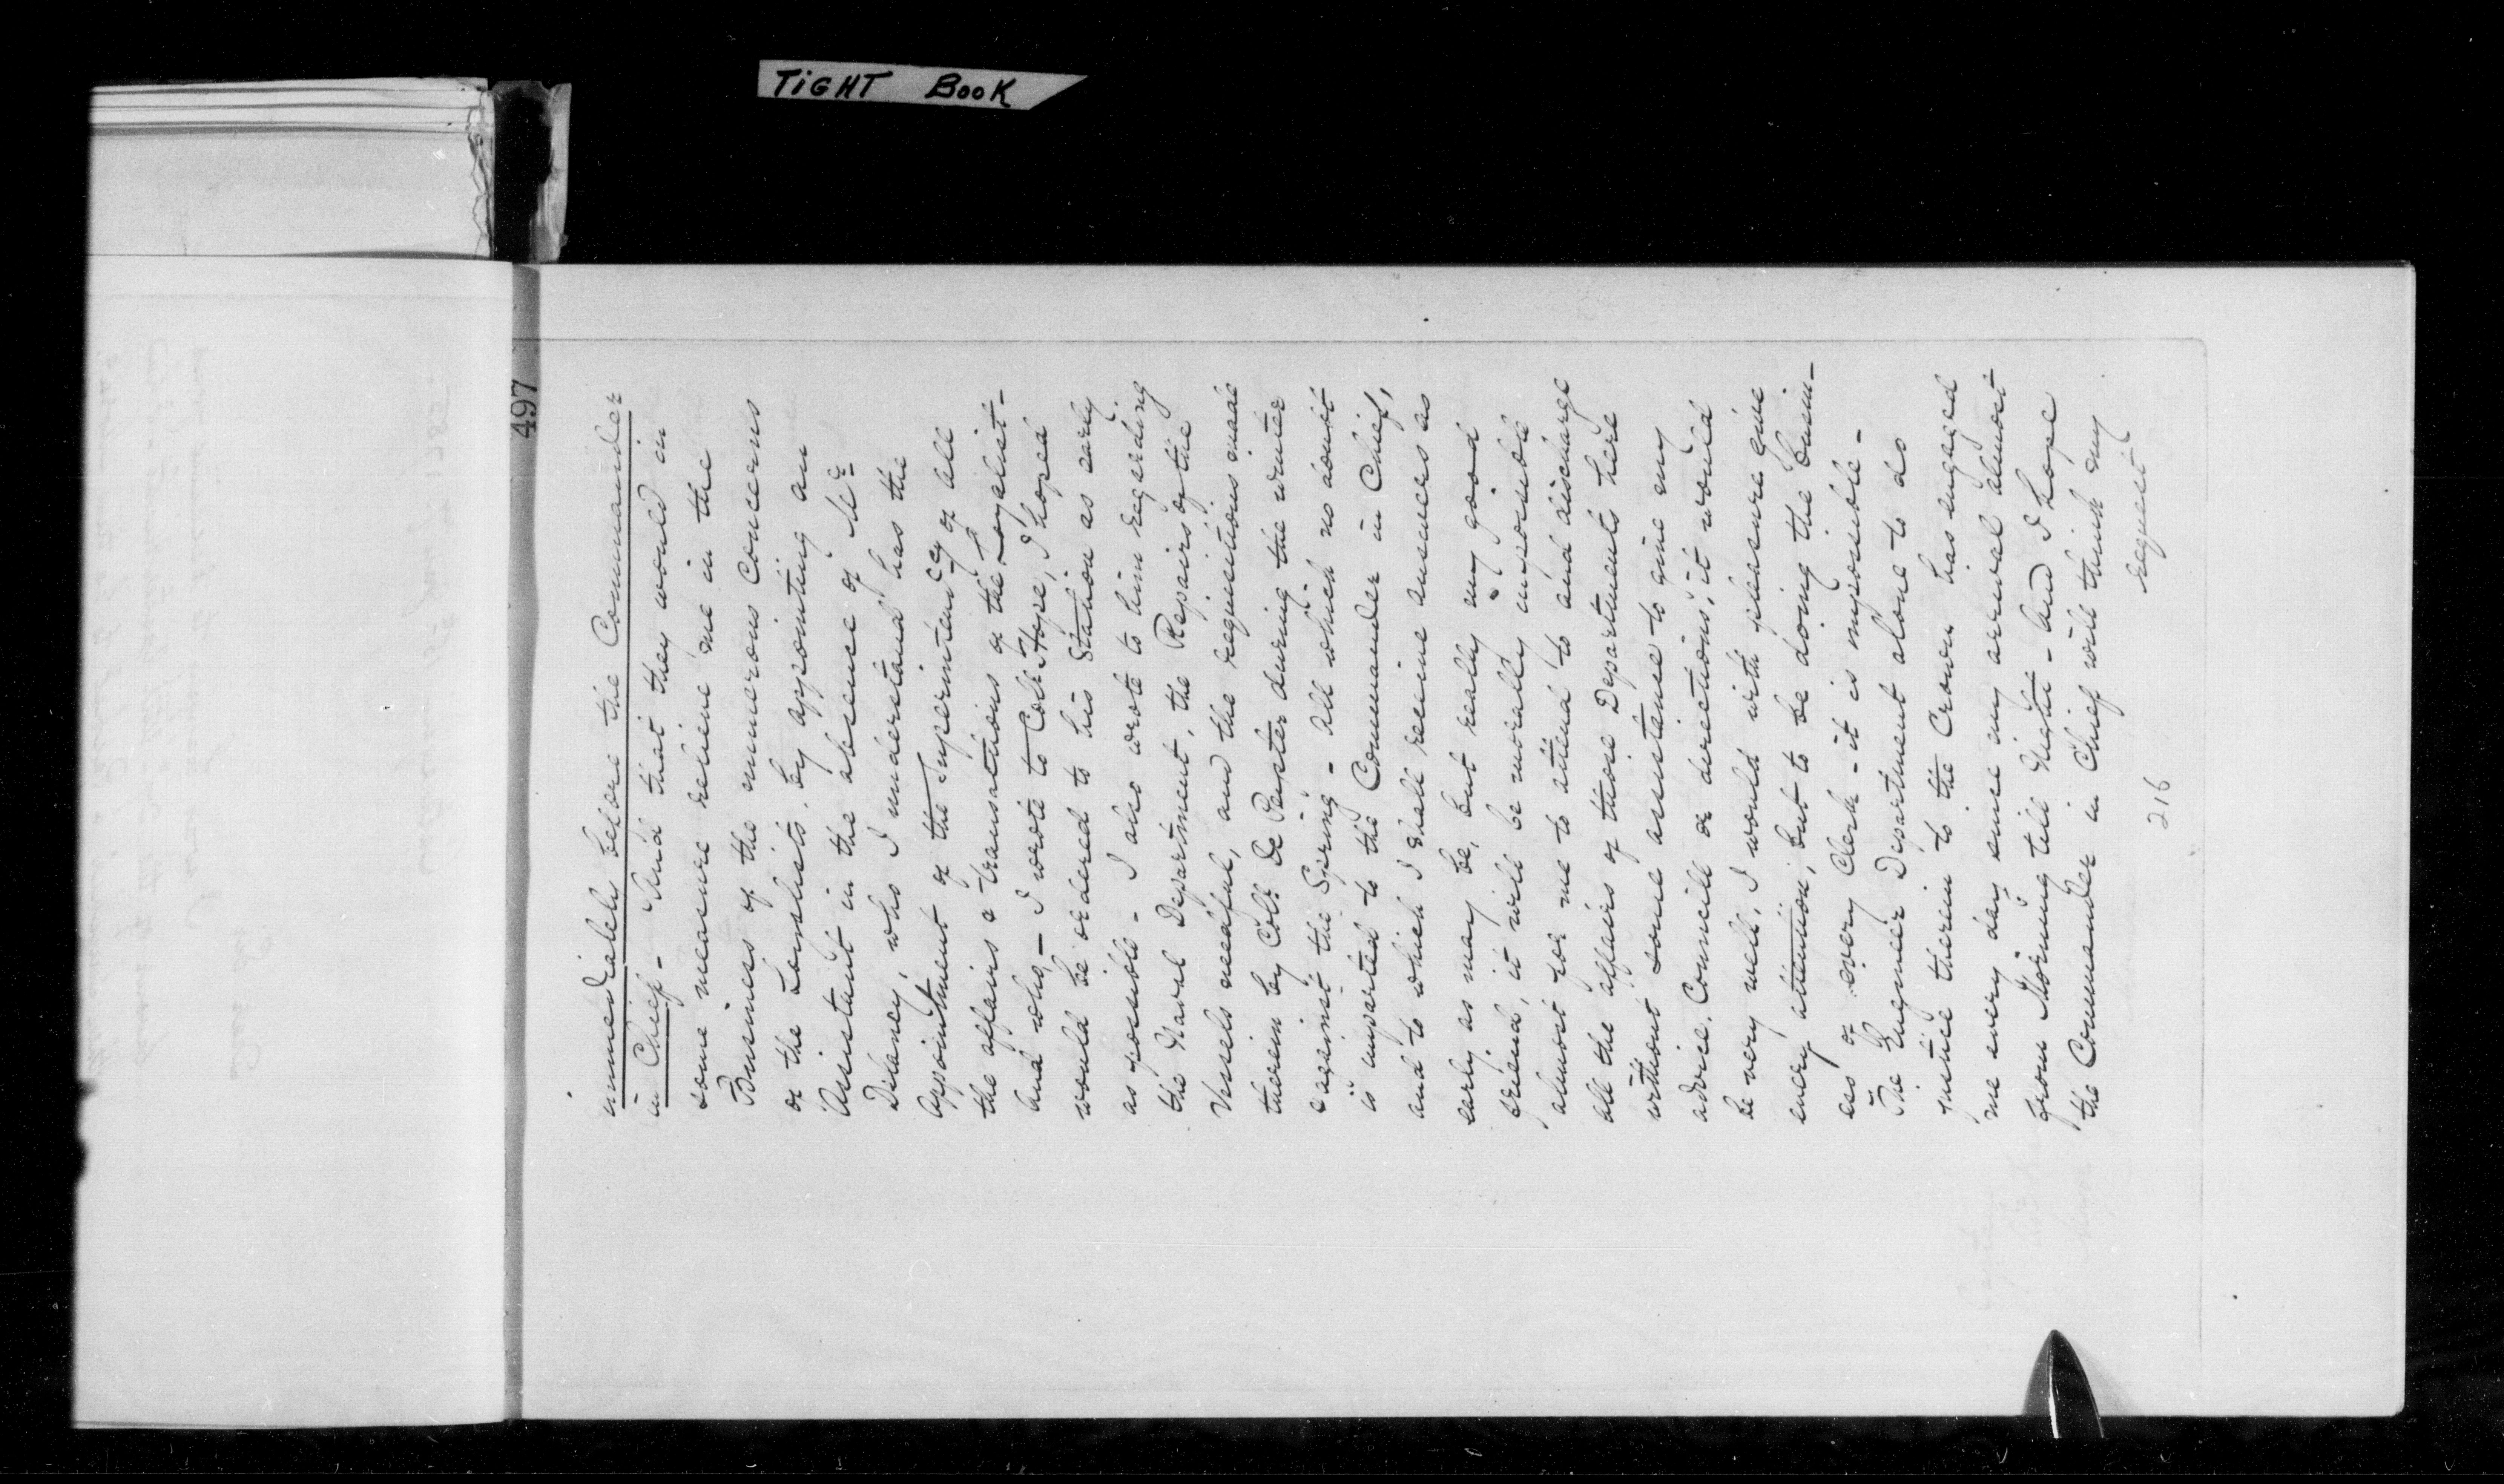 TIGHT BOOK
497
immediately before the Commander
in Chief - And that they would in
some measure relieve me in the
Business of the numerous Concerns
of the Loyalists, by appointing an
Assistant in the absence of Mr
Delancy, who I understand has the
appointment of the Superintendcy of all
the affairs & transactions of the Loyalist-
and who - I wrote to Colo Hope, I hoped
would be ordered to his Station as early
as possible - I also wrote to him regarding
the Naval Department, the Repairs of the
Vessels needful, and the requisitions made
therein by Colo De Peyster during the winter
& against the Spring - All which no doubt
is imparted to the Commander in Chief,
and to which I shall receive answers as
early as may be, but really my good
friend, it will be morally impossible
almost for me to attend to and discharge
all the affairs of those Departments here
without some assistance to give my
advice, Councill or directions, it would
be very well, I would with pleasure give
every attention, but to be doing the busin-
ess of every Clerk - it is impossible -
The Engineer Department alone to do
justice therein to the Crown has engaged
me every day since my arrival almost
from Morning till Night - And I hope
the Commander in Chief will think my
request
216